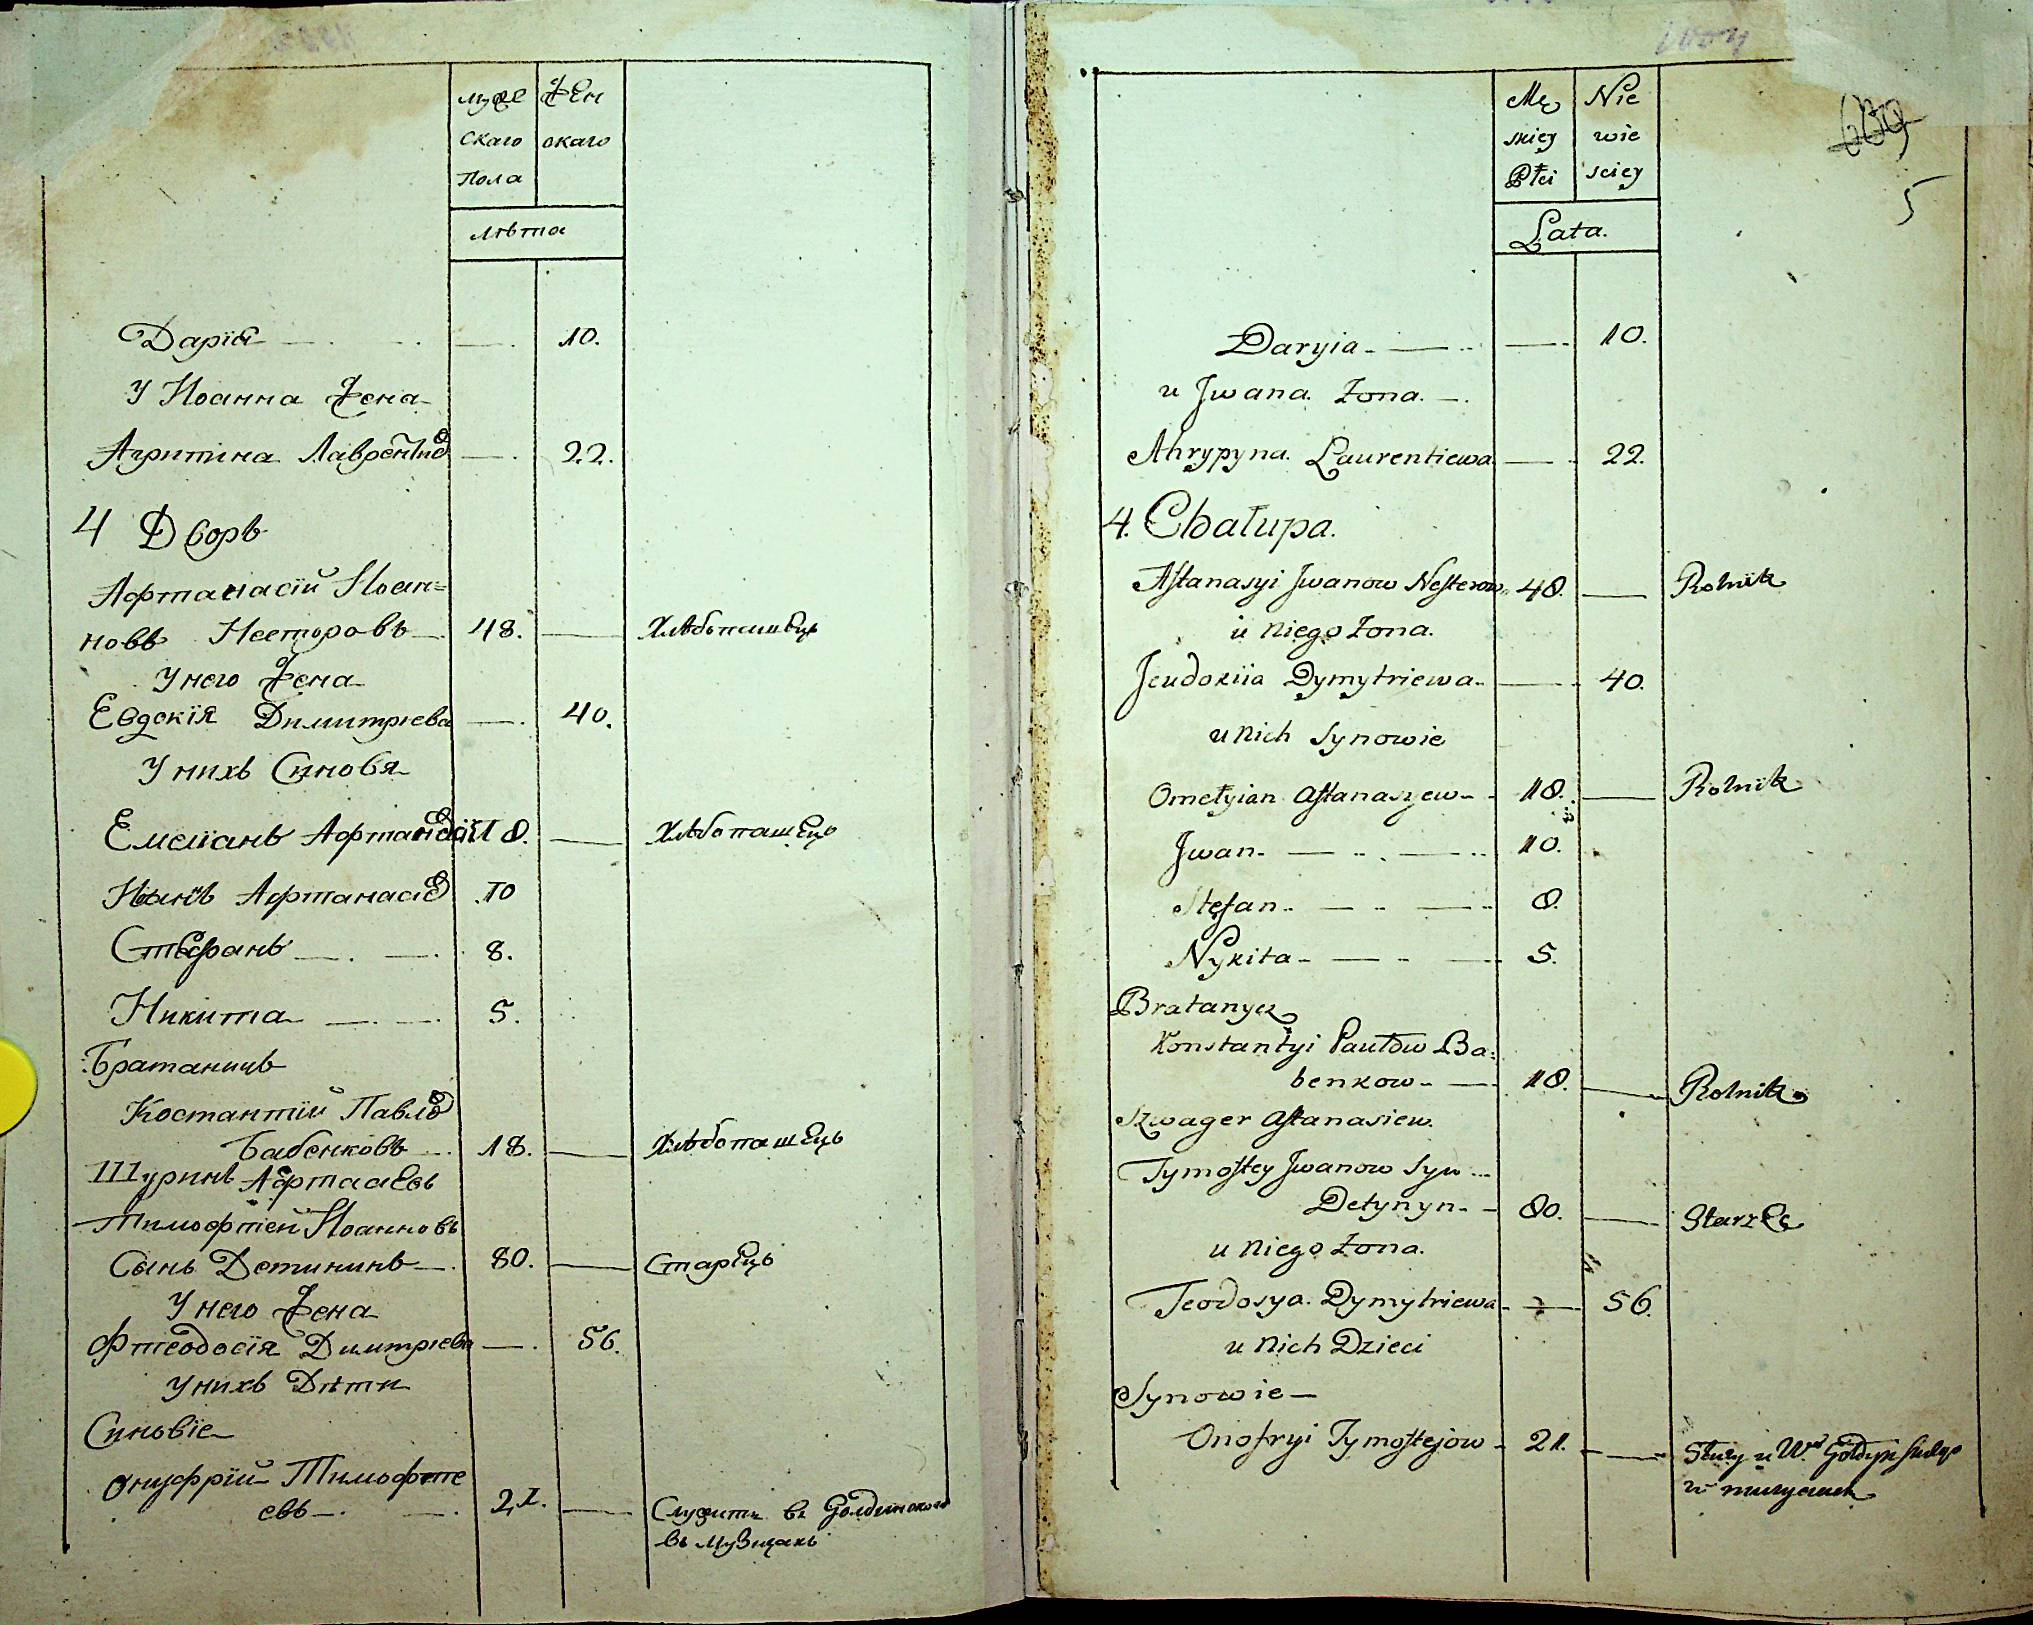 муже жен
скаго скаго
пола
лѣта
Дарїя 10.
У Иоанна жена
Агрипина Лаврентиева 22.
4 Дворъ
Афтанасїй Иоан=
новъ Несторовъ 48. Хлѣбопашецъ
У него жена
Евдокїя Димитриева 40.
У нихъ Синовя
Емелїанъ 18. Хлѣбопашецъ
Иванъ Афтанасїев 10
Стефанъ 8.
Никита 5.
Братаничъ
Костантїй Павлов
Бабенковъ 18. Хлѣбопашецъ
Шуринъ
Тимофтей Иоанновъ
Сынъ Детининъ 80. Старецъ
У него жена
Фтеодосїя Димтриева 56.
У нихъ Дѣти
Синовїе
Онуфрїй Тимофте
евъ 21. Служитъ въ Голдинского
въ музицахъ
Mę Nie
skiey wie
Płci sciey
Lata.
639
5
Daryia 10.
u Jwana Żona.
Ahrypyna Laurentiewa 22.
4. Chałupa.
Aftanasyi Jwanow Nesterow 48. Rolnik
u Niego Żona.
Jeudokiia Dymytriewa 40.
u Nich Synowie
Omełyian Aftanasyew 18. Rolnik
Jwan 10.
Stefan 8.
Nykita 5.
Bratanycz
Konstantyi Paułow Ba:
benkow 18. Rolnik
Szwager Aftanasiew
Tymoftey Jwanow Syn
Detynyn 80. Starzec
u Niego Żona.
Teodosya Dymytriewa 56.
u Nich Dzieci
Synowie
Onofryi Tymoftejow 21. Służy u
w muzycach